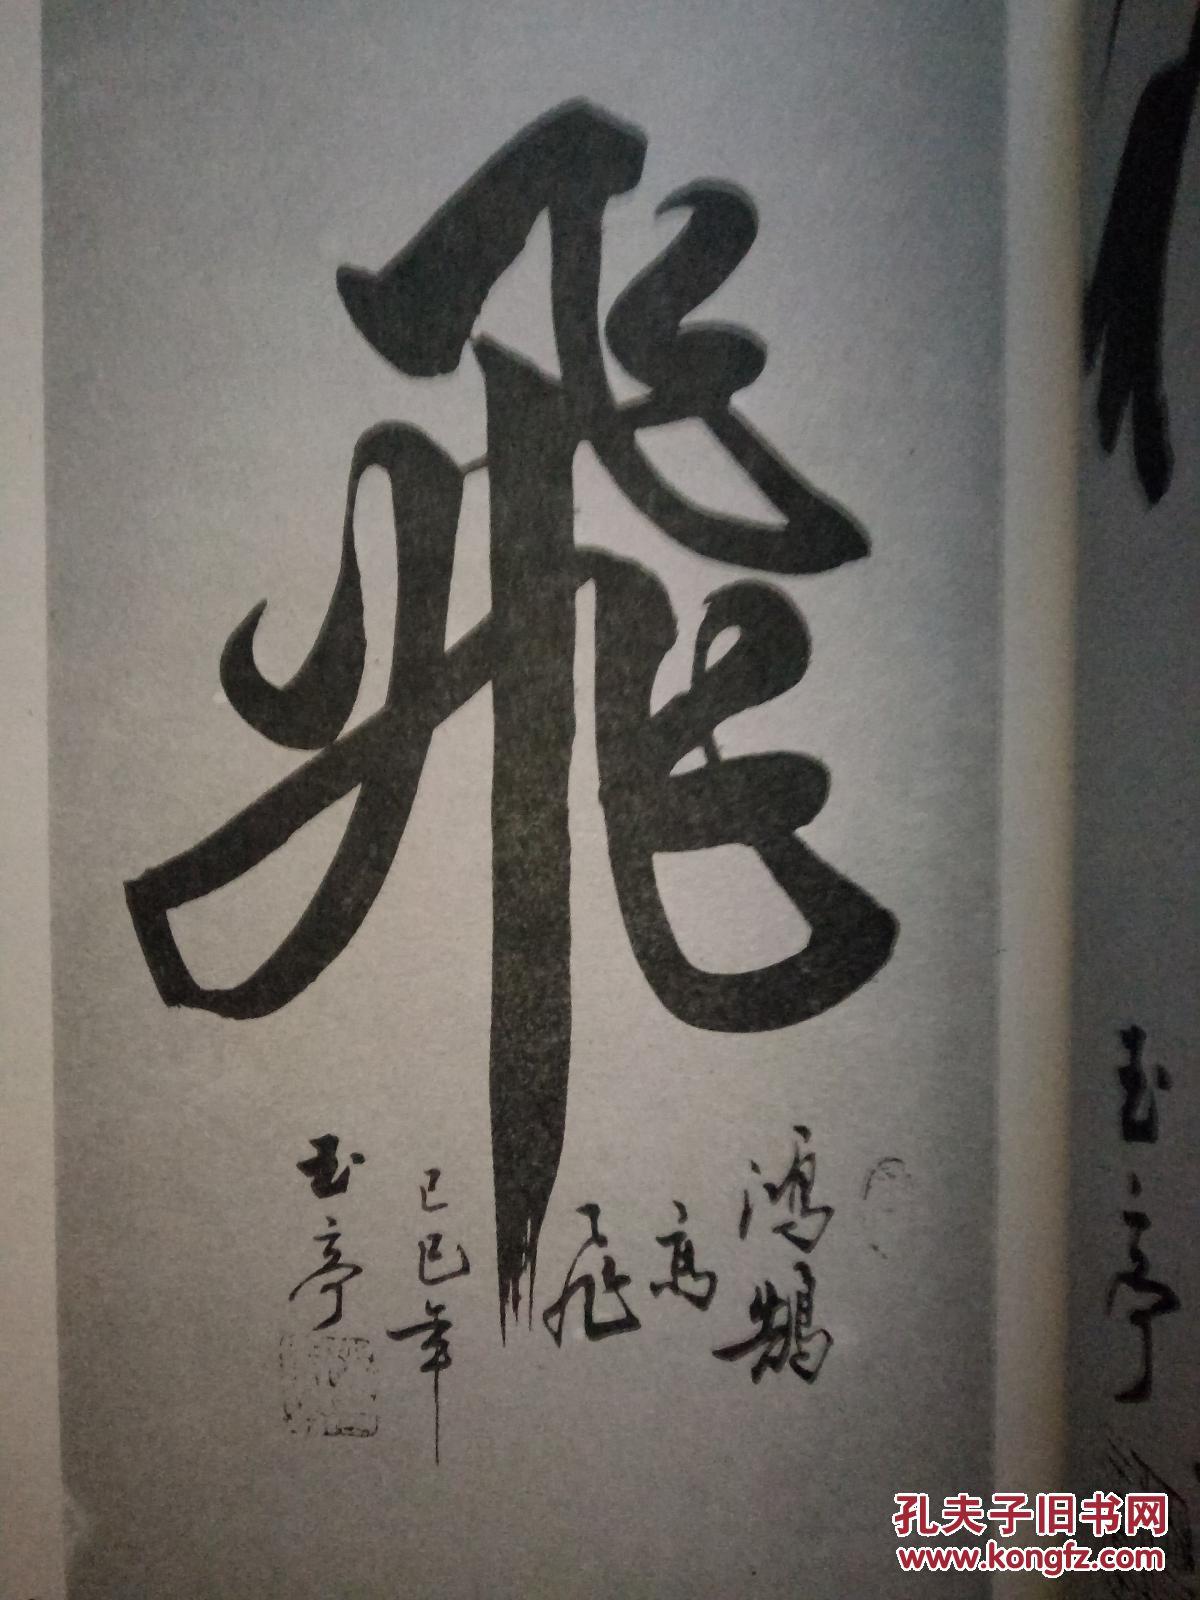 飛
鸿鹄
高
飛
己巳年
玉亭
玉亭
孔夫子旧书网
www.kongfz.com